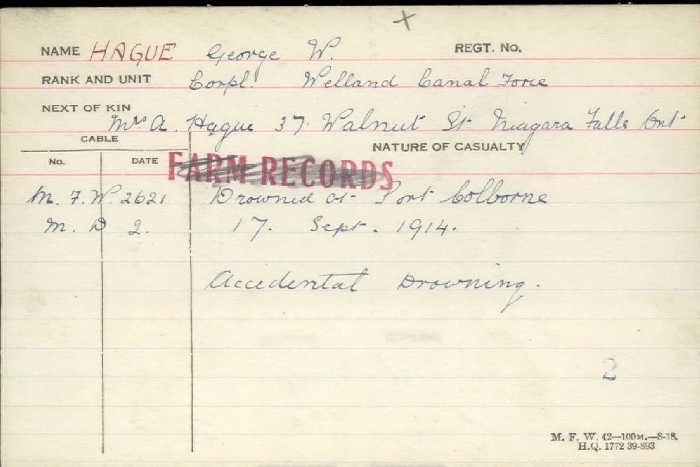 +
NAME HAGUE George W. REGT. No.
RANK AND UNIT Corpl. Welland Canal Force
NEXT OF KIN
Mrs A. Hague 37 Walnut St. Niagara Falls Ont
CABLE NATURE OF CASUALTY
No. DATE
FARM RECORDS
M. F. W. 2621 Drowned at Port Colborne
M. D 2. 17. Sept. 1914.
Accidental Drowning.
2
M. F. W. 42—100M.—8-18.
H.Q. 1772 39-893